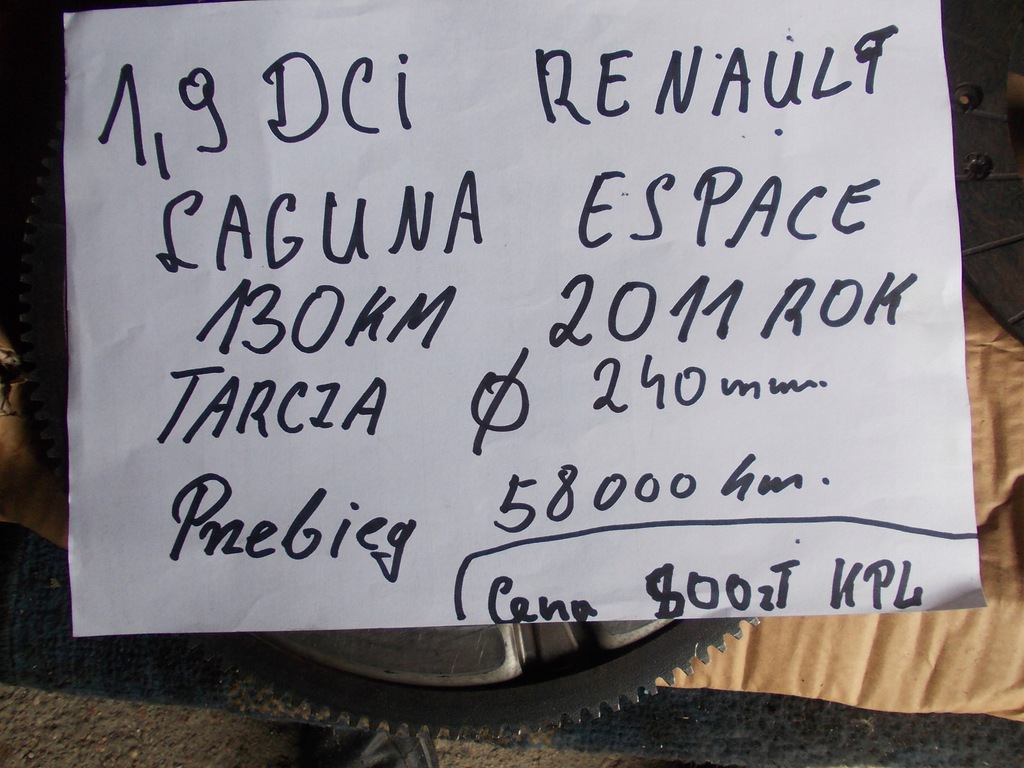 1,9 DCi RENAULT
LAGUNA ESPACE
130KM 2011 ROK
TARCZA Ø 240mm.
Przebieg 58000 km.
Cena 800zł KPL